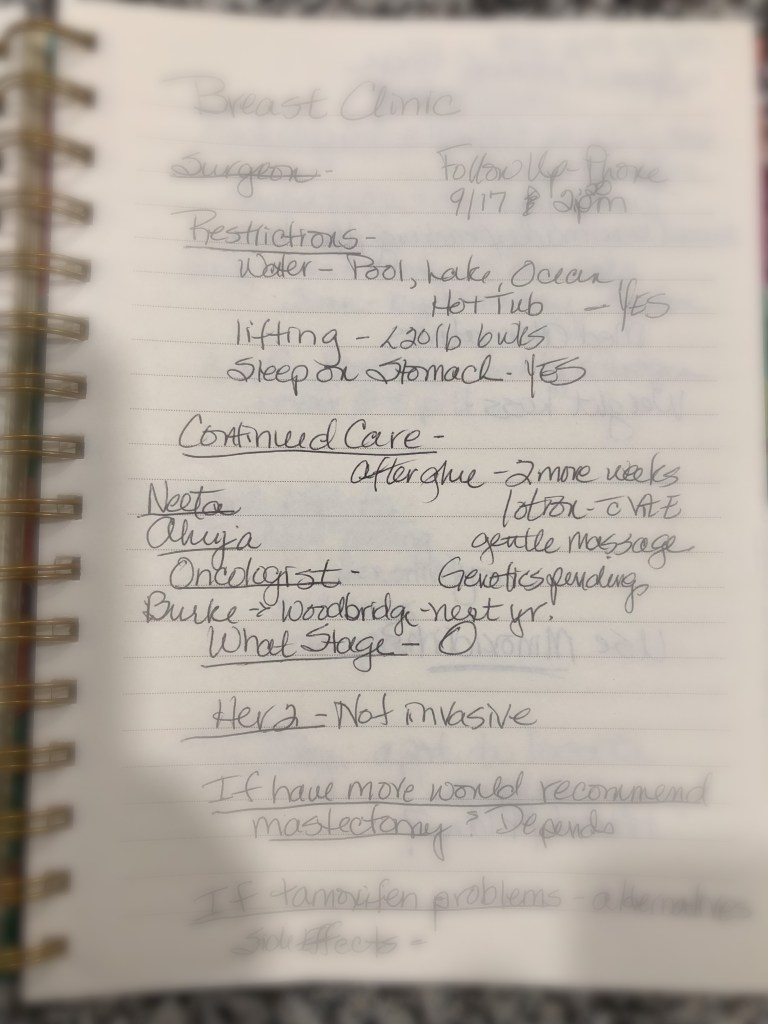 Breast Clinic
Surgeon - Follow Up Phone
9/17 2pm
Restrictions -
Water - Pool, Lake, Ocean
Hot Tub - YES
lifting - <20lb
Sleep on Stomach - YES
Continued Care -
after glue - 2 more weeks
Neeta lotion - c Vit E
Ahuja gentle massage
Oncologist - Genetics pending
Burke → Woodbridge - next yr.
What Stage - 0
Her2 - Not invasive
If have more would recommend
mastectomy? Depends
If tamoxifen problems - alternatives
Side Effects -